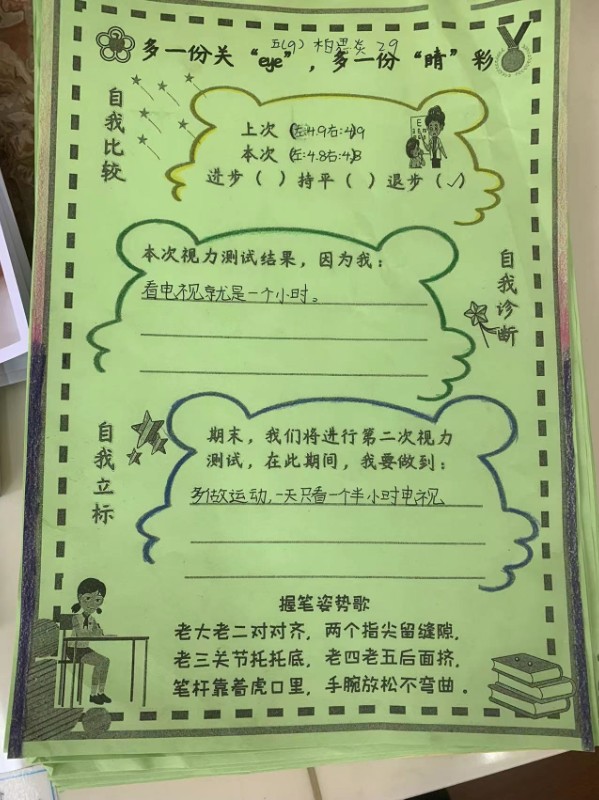 五(9) 柏思炎 29
多一份关“eye”，多一份“睛”彩
自我比较
上次（左:4.9右:4.)9
本次（左:4.8右:4.)8
进步（ ）持平（ ）退步（✓）
本次视力测试结果，因为我：
看电视就是一个小时。
自我诊断
期末，我们将进行第二次视力
测试，在此期间，我要做到：
多做运动,一天只看一个半小时电视
自我立标
握笔姿势歌
老大老二对对齐，两个指尖留缝隙，
老三关节托托底，老四老五后面挤，
笔杆靠着虎口里，手腕放松不弯曲。